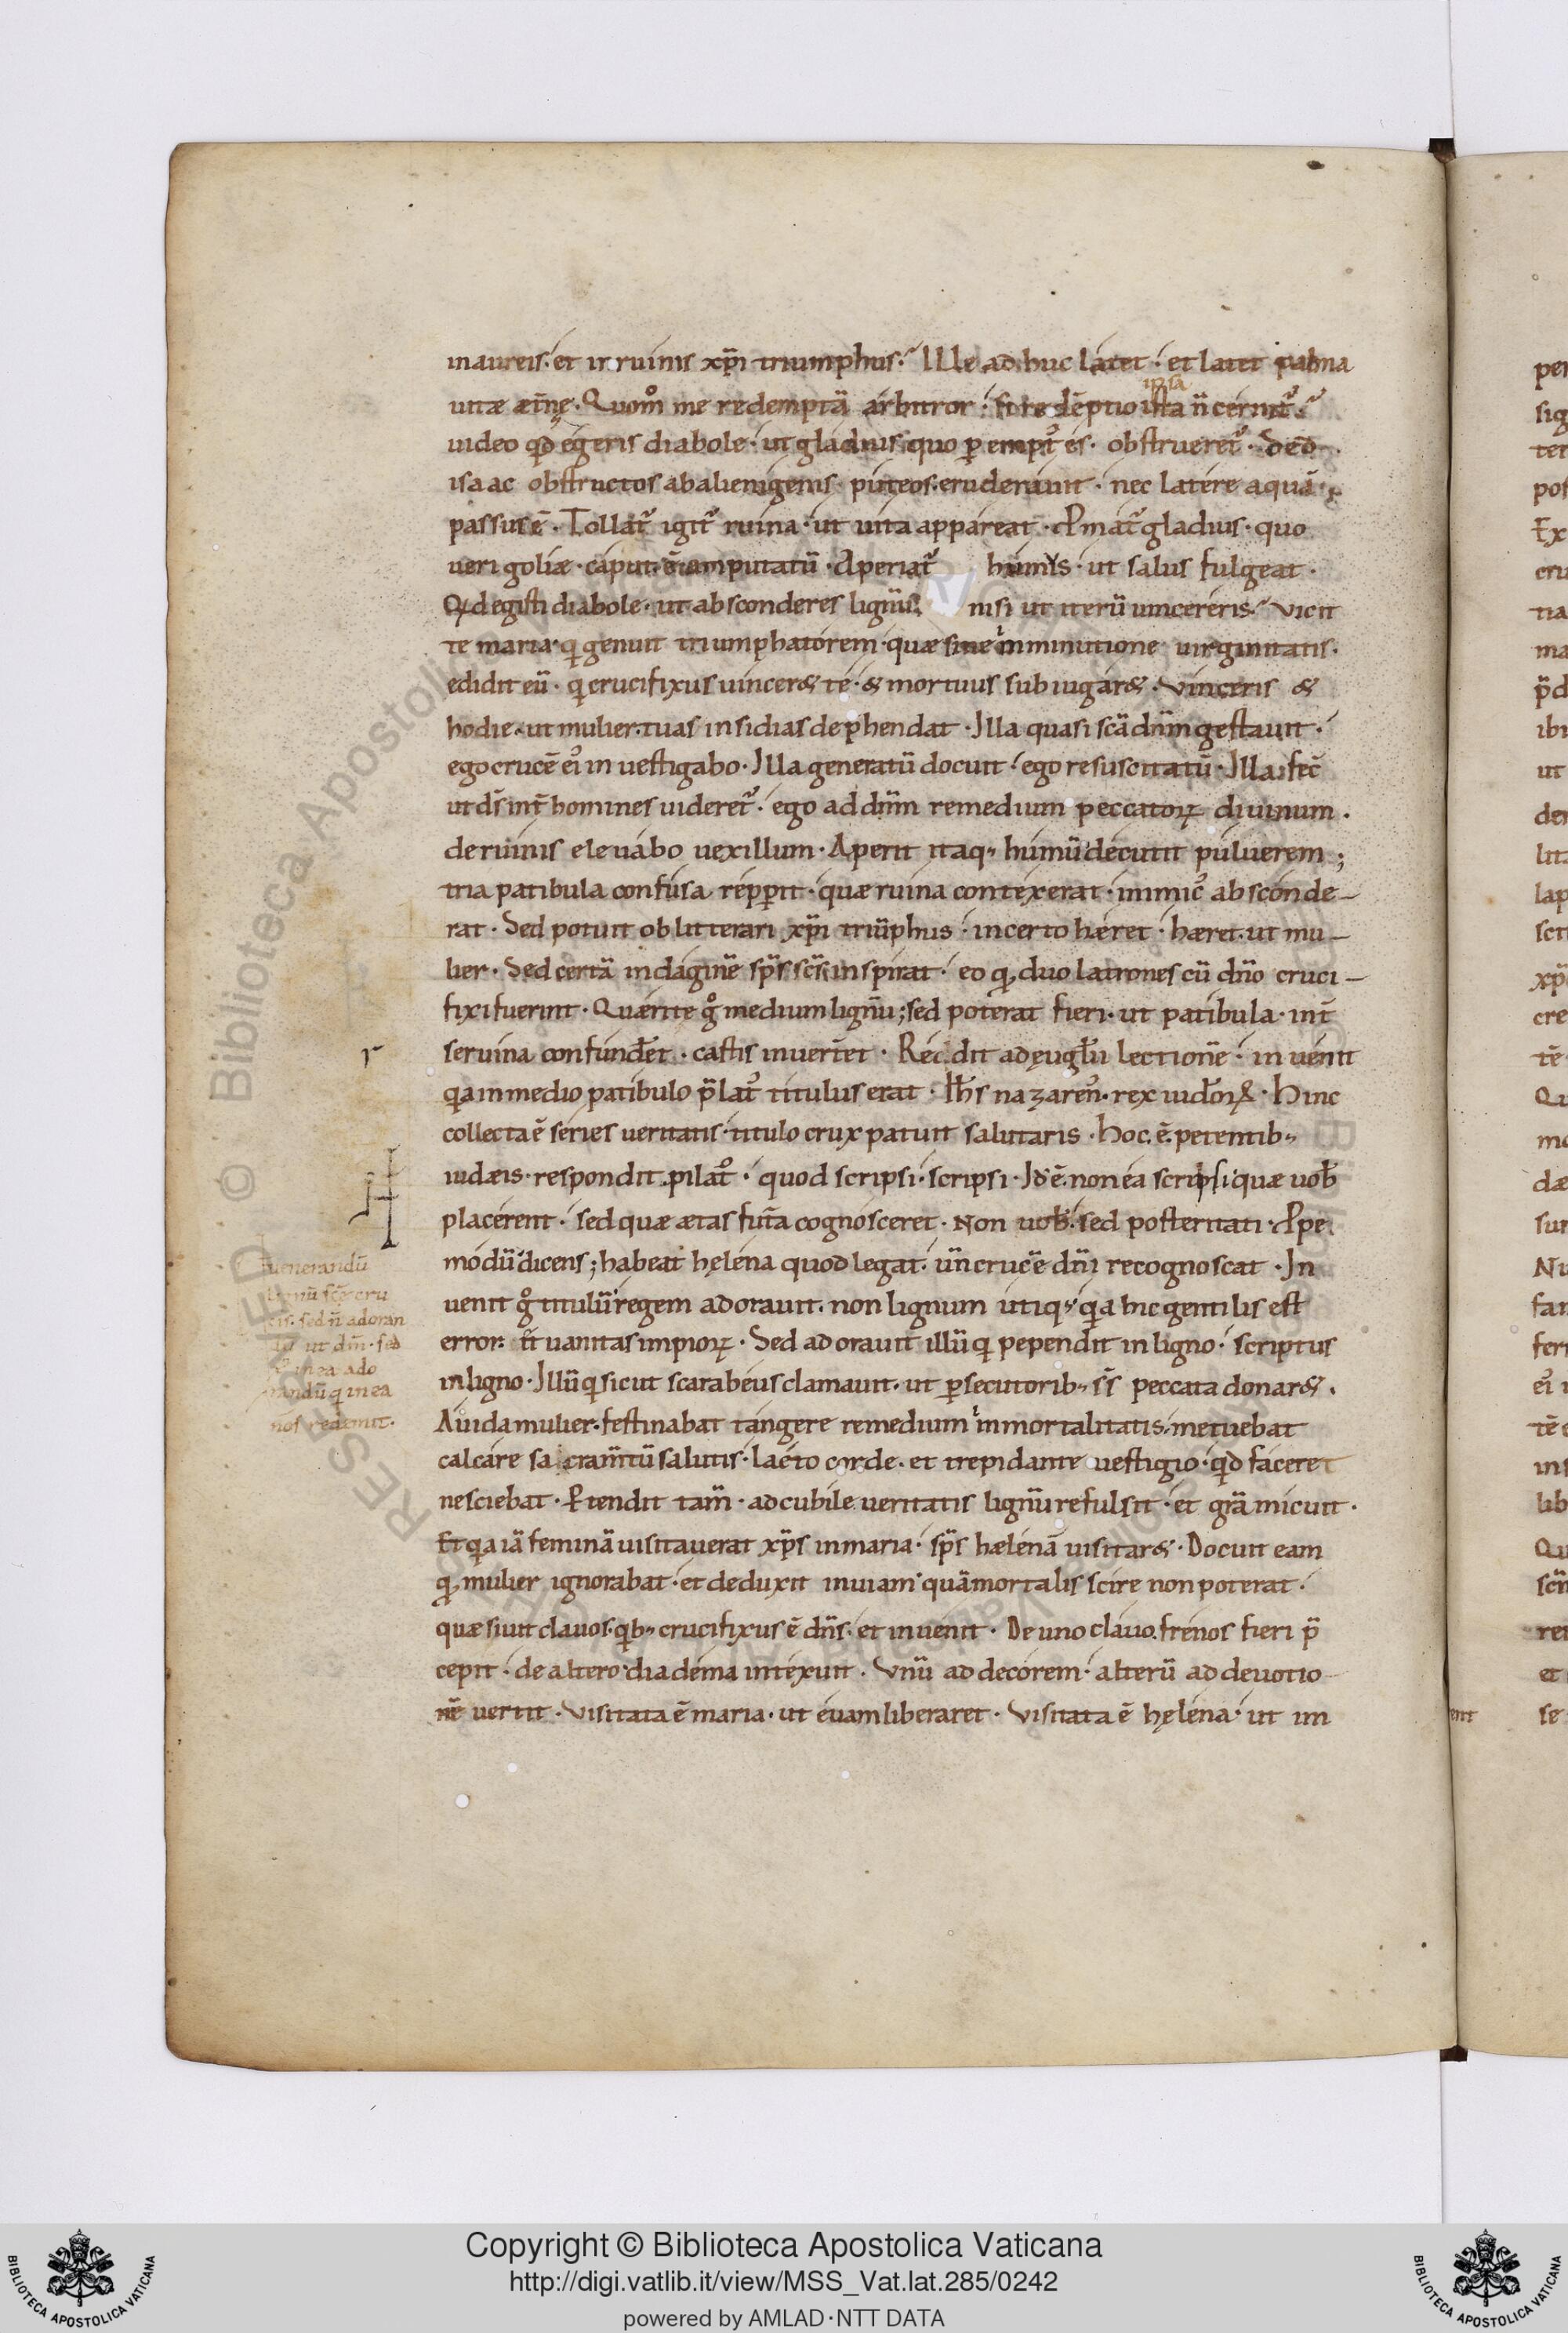 inaureis · et in ruinis xp̄i triumphus · Ille ad huc latet · et latet palma
uitæ æt̄nę · Quom̊ me redemptā arbitror · si redēptio ista n̄ cernit᷑ ·
ipsa
uideo qd egeris diabole · ut gladius quo p̱emptꝰ es · obstrueret᷑ · Sed
isaac obstructos abalienigenis puteos · eruderauit · nec latere aquā
passus ē · Tollat᷑ igit᷑ ruina · ut uita appareat · Ꝓmat᷑ gladius · quo
ueri goliæ · caput · ē amputatū · Aperiat᷑ humꝰs · ut salus fulgeat ·
Qd egisti diabole · ut absconderes lignū nisi ut iterū uincereris · Vicit
te maria · q̇ genuit triumphatorem · quæ sine inminutione uirginitatis ·
edidit eū · q̇ crucifixus uincer& te · & mortuus subiugar& · Vinceris &
hodie · ut mulier · tuas insidias dep̄hendat · Illa quasi scā dnm̄ gestauit ·
ego crucē eiꝰ inuestigabo · Illa generatū docuit · ego resuscitatū · Illa · fec̄
ut ds̄ int̄ homines uideret᷑ · ego ad dnm̄ remedium peccatoꝝ diuinum ·
de ruinis eleuabo uexillum · Aperit itaq, humū decutit puluerem ;
tria patibula confusa rep̱pit · quæ ruina contexerat · inimicꝰ absconde–
rat · Sed potuit oblitterari xp̄i triūphus · incerto hæret · hæret · ut mu–
lier · Sed certā indaginē sp̄s sc̄s inspirat · eo qͩ, duo latrones cū dn̄o cruci–
fixi fuerint · Quærite g̊ medium lignū ; sed poterat fieri · ut patibula · int̄
se ruina confund̄et · castis inuert̄et · Rec̄dit ad eugl̄ii lectionē · inuenit
qa in medio patibulo p̄latꝰ titulus erat · Ih̄s nazaren̄ꝰ · rex iud̄oꝝ · Hinc
collecta ē series ueritatis · titulo crux patuit salutaris · Hoc · ē · petentib,
iudæis · respondit · pilatꝰ · quod scripsi · scripsi · Id ē · non ea scripsi quæ uob̄
placerent · sed quæ ætas fut̄a cognosceret · Non uob̄ · sed posteritati · Ꝓpe
modū dicens ; habeat hęlena quod legat · un̄ crucē dn̄i recognoscat · In
uenit g̊ titulū regem adorauit · non lignum utiq, · qa hic gentilis est
error · et uanitas impioꝝ · Sed adorauit illū q̇ pependit in ligno · scriptus
in ligno · Illū q̇ sicut scarabeus clamauit · ut p̱secutorib, s̄s peccata donar& ·
Auida mulier · festinabat tangere remedium inmortalitatis · metuebat
calcare sacram̄tū salutis · laeto corde · et trepidante uestigio · qd faceret
nesciebat · P̱tendit tam̄ · ad cubile ueritatis lignū refulsit · et gr̄a micuit ·
Et qa iā feminā uisitauerat xp̄s in maria · sp̄s hælenā uisitar& · Docuit eam
qͩ, mulier ignorabat · et deduxit inuiam quā mortalis scire non poterat ·
quæsiuit clauos · q̇b, crucifixus ē dn̄s · et inuenit · De uno clauo · frenos fieri p̄
cepit · de altero diadema intexuit · Vnū ad decorem · alterū ad deuotio–
nē uertit · Visitata ē maria · ut euam liberaret · Visitata ē hęlena · ut im
r
uenerandū
lignū scę cru
cis · sed n̄ adoran
dū ut dm̄ · sed
in ea ado
randū q̇ in ea
nos redemit ·
Copyright © Biblioteca Apostolica Vaticana
http://digi.vatlib.it/view/MSS_Vat.lat.285/0242
powered by AMLAD·NTT DATA